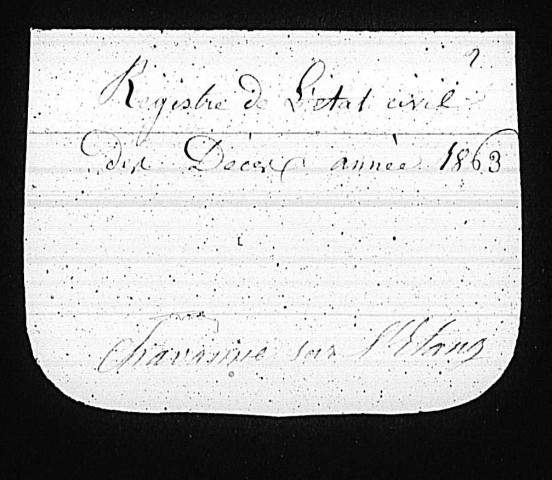 2
Registre de L'etat civil
des Décès année 1863
Chavanne sur l'Etang